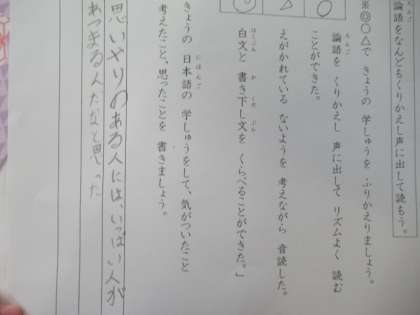 論語をなんどもくりかえし声に出して読もう。
※◎○△で きょうの 学しゅうを ふりかえりましょう。
論語を くりかえし 声に出して リズムよく 読む
ことができた。
えがかれている ないようを 考えながら 音読した。
白文と 書き下し文を くらべることができた。」
きょうの 日本語の 学しゅうをして、気がついたこと
考えたこと、思ったことを 書きましょう。
思いやりのある人には、いっぱい人が
あつまる人だなと思った